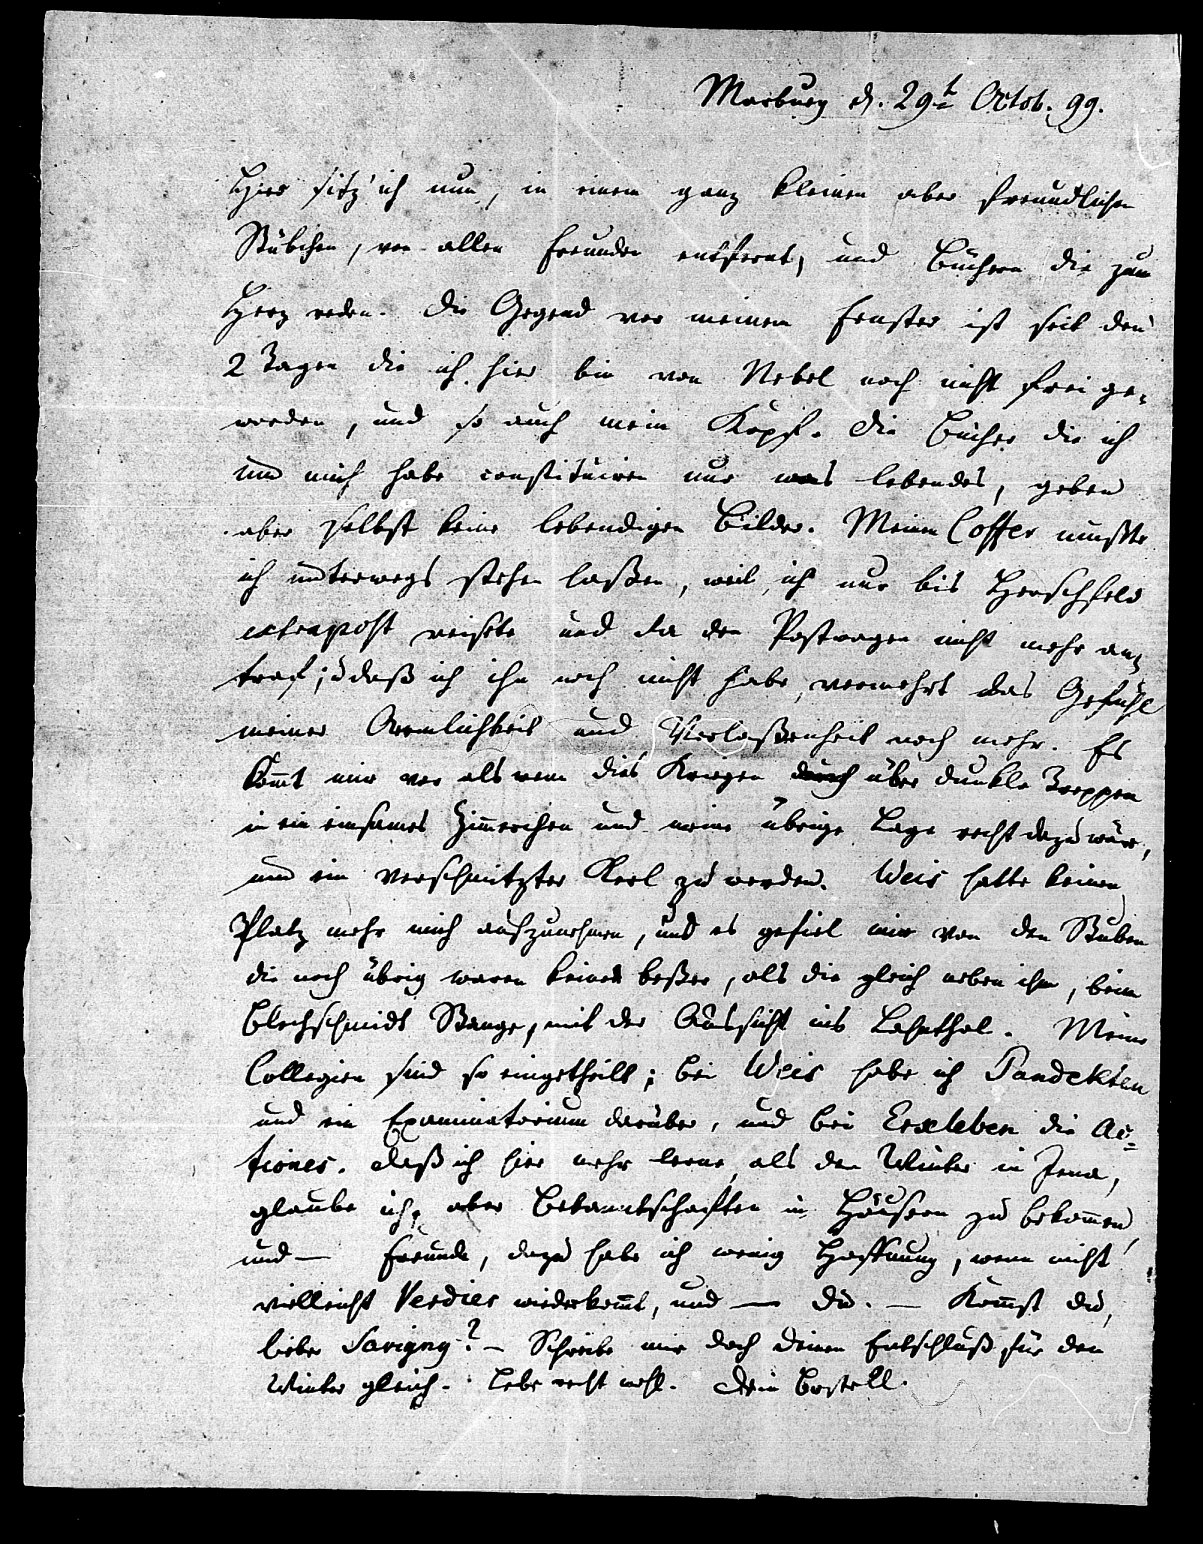 Marburg d. 29t Octob. 99.
Hier sitz' ich nun, in einem ganz kleinen aber freundlichen
Stübchen, von allen Freunden entfernt, und Büchern die zum
Herz reden. Die Gegend vor meinem Fenster ist seit den
2 Tagen die ich hier bin von Nebel noch nicht frei ge-
worden, und so auch mein Kopf. Die Bücher die ich
um mich habe constituiren nur was lebendes, geben
aber selbst keine lebendigen Bilder. Meinen Coffer mußte
ich unterwegs stehen laßen, weil ich nur bis Herschfeld
extrapost reisete und da den Postwagen nicht mehr an-
traf; daß ich ihn noch nicht habe, vermehrt das Gefühl
meiner Ärmlichkeit und Verlaßenheit noch mehr. Es
kom̄t mir vor als wenn dies durch über dunkle Treppen
in ein einsames Zim̄erchen und meine übrige Lage recht dazu wäre,
um ein verschmitzter Kerl zu werden. Weis hatte keinen
Platz mehr mich aufzunehmen, und es gefiel mir von den Stuben
die noch übrig waren keine beßer, als die gleich neben ihm, beim
Blechschmidt Stange, mit der Aussicht ins Lahnthal. Meine
Collegien sind so eingetheilt; bei Weis habe ich Pandekten
und ein Examinatorium darüber, und bei Erxleben die Ac-
tiones. Daß ich hier mehr lerne, als den Winter in Jena,
glaube ich, aber Bekanntschaften in Häusern zu bekom̄en,
und — Freunde, dazu habe ich wenig Hoffnung, wenn nicht
vielleicht Verdier wiederkom̄t, und — Du. — Kom̄st du,
lieber Savigny? — Schreibe mir doch deinen Entschluß für den
Winter gleich. Lebe recht wohl. Dein Bostell.